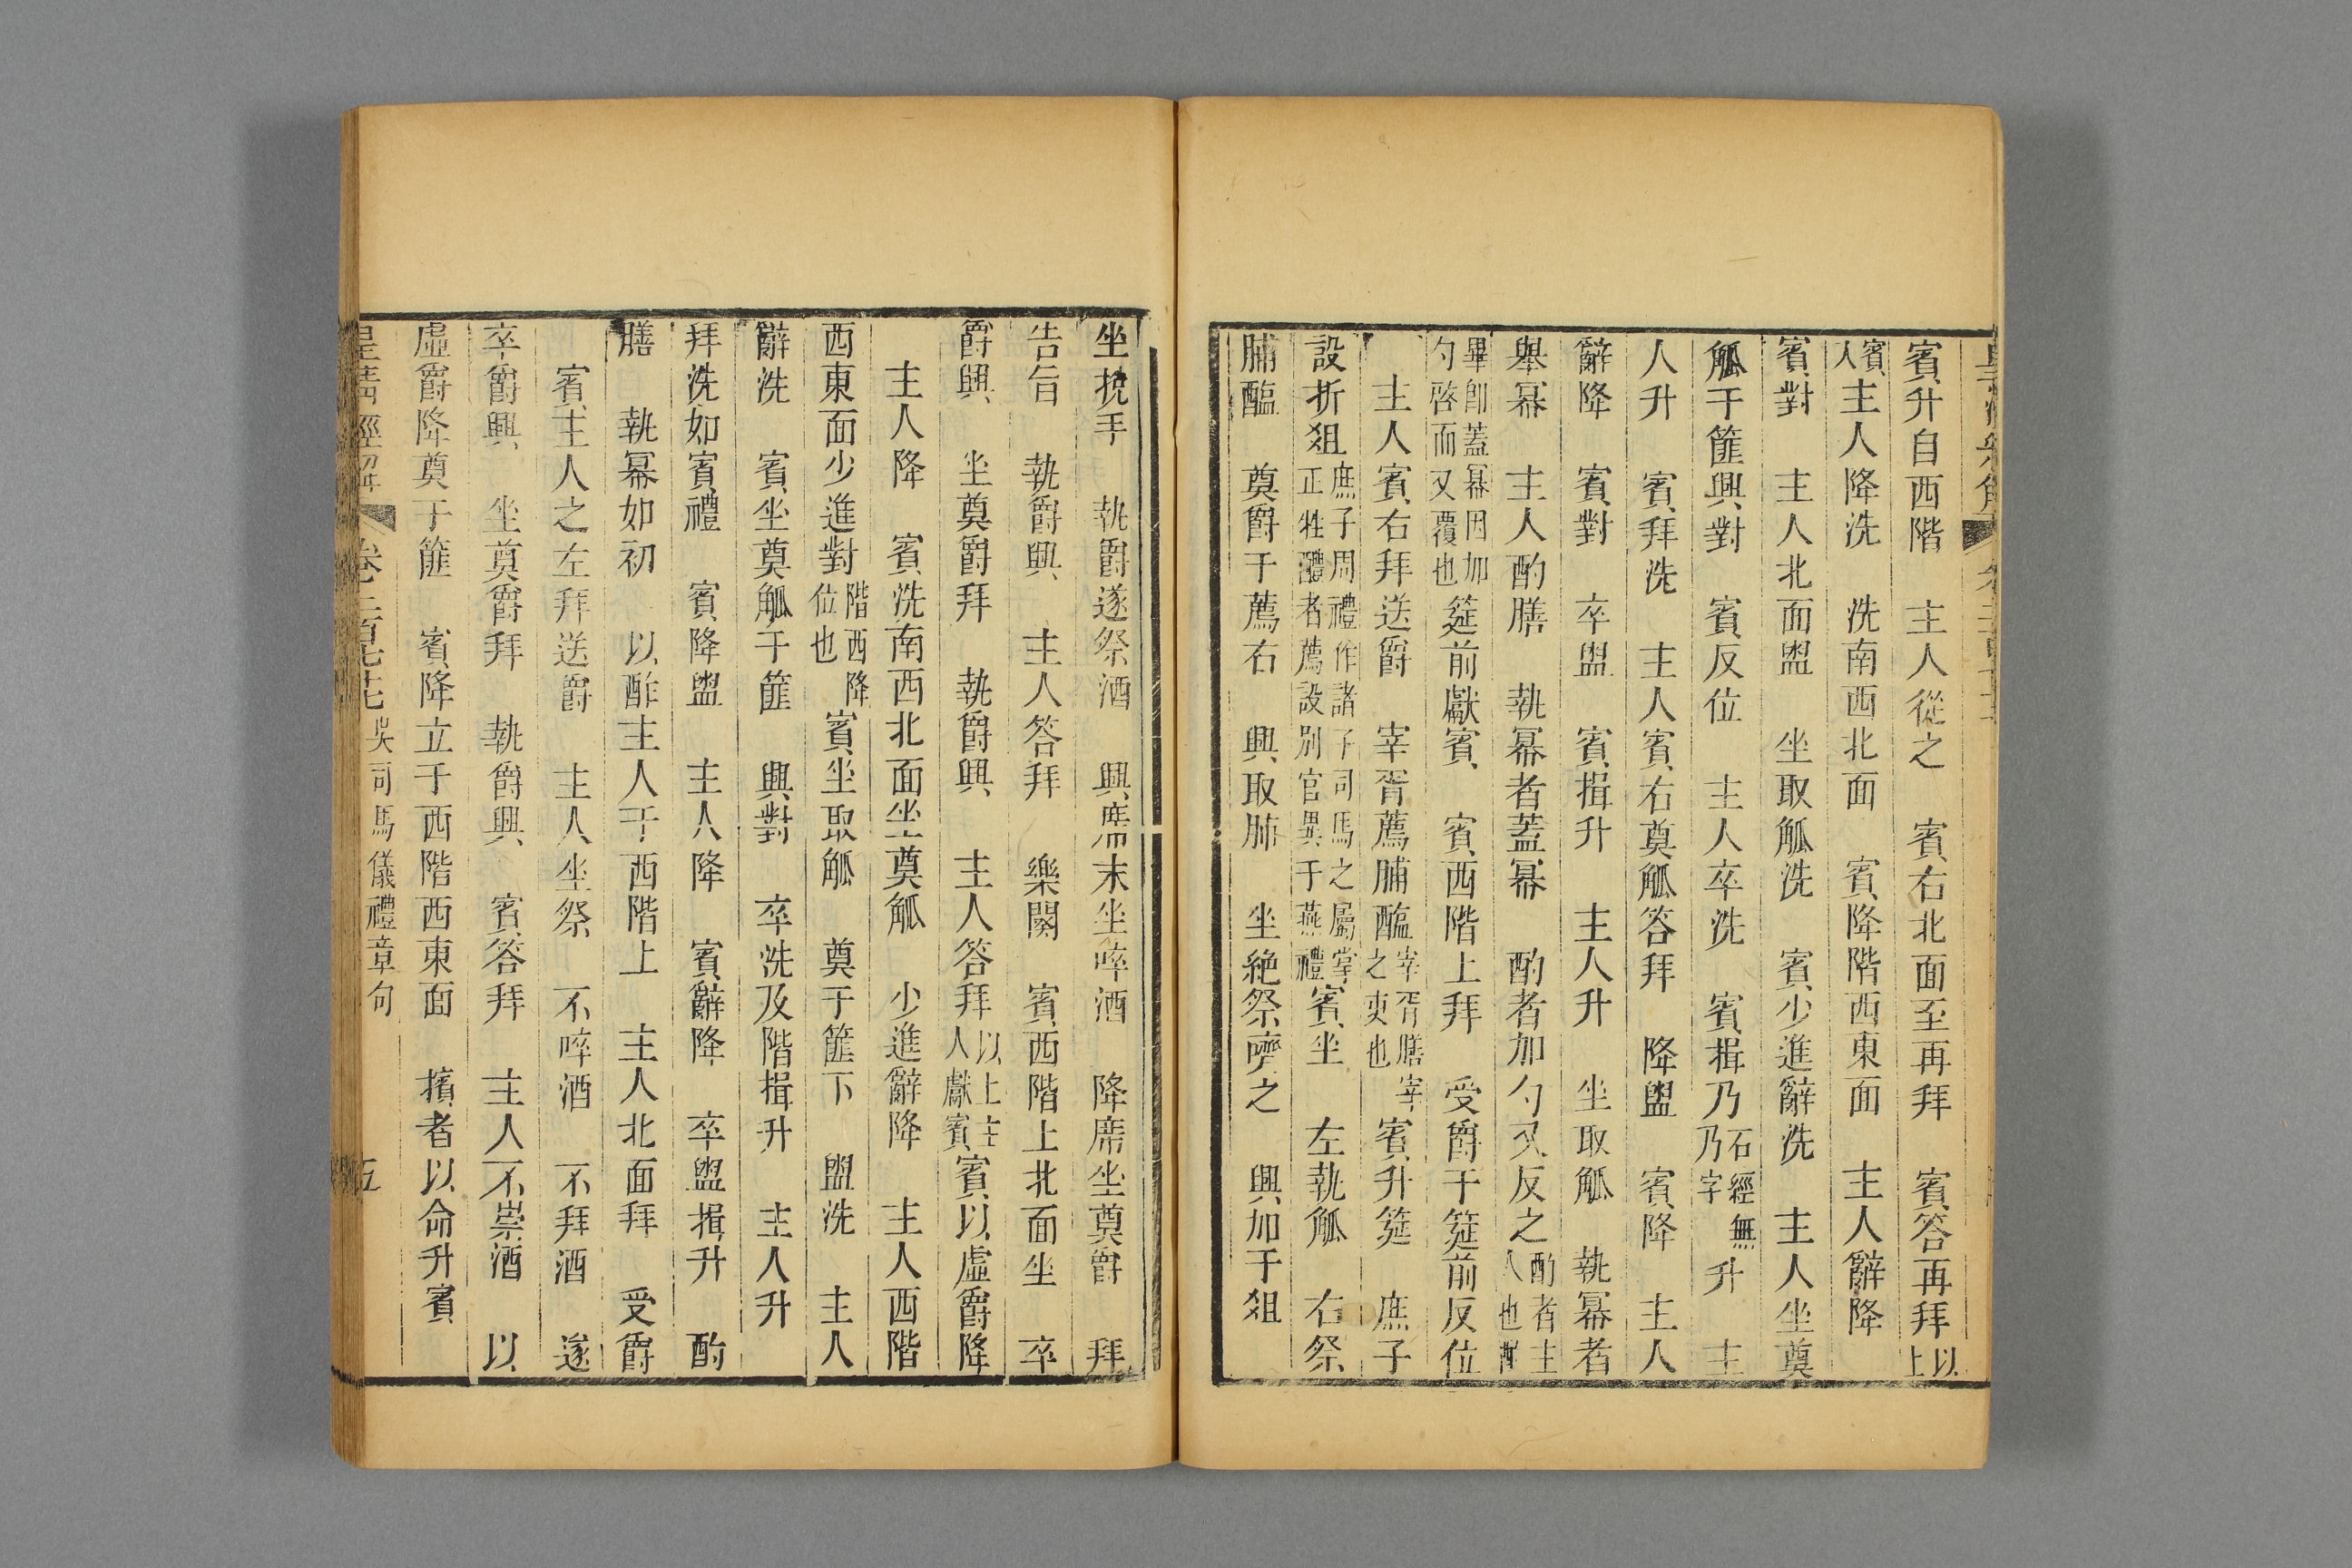 賓升自西階　主人從之　賓右北面至再拜　賓答再拜以上
賓人主人降洗　洗南西北面　賓降階西東面　主人辭降
賓對　主人北面盥　坐取觚洗　賓少進辭洗　主人坐奠
觚于篚興對　賓反位　主人卒洗　賓揖乃石經無乃字升　主
人升　賓拜洗　主人賓右奠觚答拜　降盥　賓降　主人
辭降　賓對　卒盥　賓揖升　主人升　坐取觚　執冪者
舉冪　主人酌膳　執冪者蓋冪　酌者加勺又反之酌者主人也酌
畢卽蓋冪因加勺啓而又覆也　筵前獻賓　賓西階上拜　受爵于筵前反位
主人賓右拜送爵　宰胥薦脯醢宰胥膳宰之吏也　賓升筵　庶子
設折俎庶子周禮作諸子司馬之屬掌正牲體者薦設別官異于燕禮賓坐　左執觚　右祭
脯醢　奠爵于薦右　興取肺　坐絶祭嚌之　興加于俎
坐挩手　執爵遂祭酒　興席末坐啐酒　降席坐奠爵　拜
告旨　執爵興　主人答拜　樂闋　賓西階上北面坐　卒
爵興　坐奠爵拜　執爵興　主人答拜以上主人獻賓賓以虛爵降
主人降　賓洗南西北面坐奠觚　少進辭降　主人西階
西東面少進對階西降位也　賓坐取觚　奠于篚下　盥洗　主人
辭洗　賓坐奠觚于篚　興對　卒洗及階揖升　主人升
拜洗如賓禮　賓降盥　主人降　賓辭降　卒盥揖升　酌
膳　執冪如初　以酢主人于西階上　主人北面拜　受爵
賓主人之左拜送爵　主人坐祭　不啐酒　不拜酒　遂
卒爵興　坐奠爵拜　執爵興　賓答拜　主人不崇酒　以
虛爵降奠于篚　賓降立于西階西東面　擯者以命升賓
皇清經解　卷二百七十　吳司馬儀禮章句　五